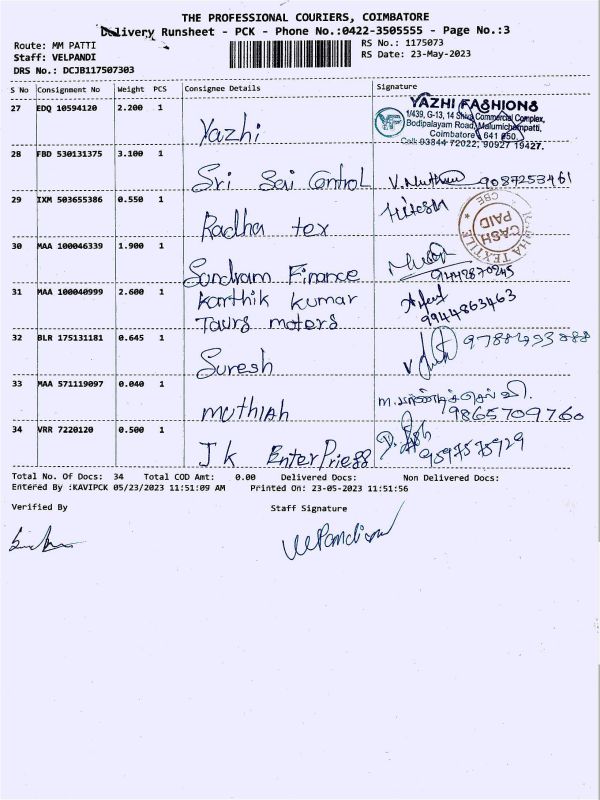 THE PROFESSIONAL COURIERS, COIMBATORE
Delivery Runsheet - PCK - Phone No.:0422-3505555 - Page No.:3
Route: MM PATTI
Staff: VELPANDI
DRS No.: DCJB117507303
RS No.: 1175073
RS Date: 23-May-2023
S No Consignment No Weight PCS Consignee Details Signature
27 EDQ 10594120 2.200 1 Yazhi
YAZHI FASHIONS
1/439, G-13, 14 Shiva Commercial Complex,
Bodipalayam Road, Malumichampatti,
Coimbatore 641 050.
Cell: 93844 72022, 90927 19427.
28 FBD 530131375 3.100 1 Sri Sai Control V. Muthu 9087253461
29 IXM 503655386 0.550 1 Radha tex Hitesh
CASH PAID
CBE
TEXTILE
30 MAA 100046339 1.900 1 Sundram Finance
9442870245
31 MAA 100040999 2.600 1 Karthik kumar
Taurs motors
9944863463
32 BLR 175131181 0.645 1 Suresh
33 MAA 571119097 0.040 1 muthiah
9865709760
34 VRR 7220120 0.500 1 J k EnterPriess
9597575929
Total No. Of Docs: 34 Total COD Amt: 0.00 Delivered Docs: Non Delivered Docs:
Entered By :KAVIPCK 05/23/2023 11:51:09 AM Printed On: 23-05-2023 11:51:56
Verified By Staff Signature